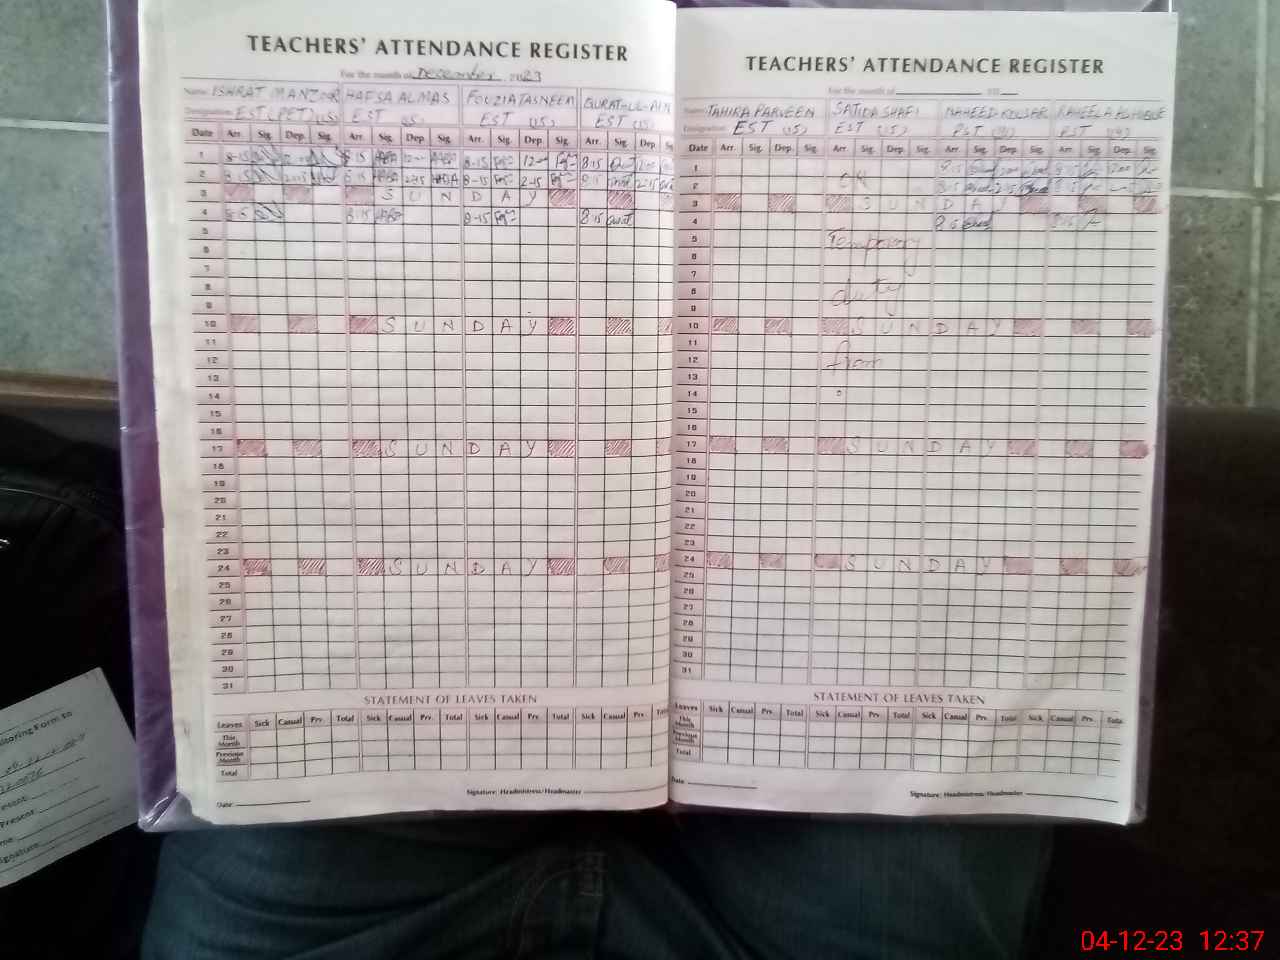 TEACHERS' ATTENDANCE REGISTER
For the month of December 2023
Name ISHRAT MANZOOR HAFSA ALMAS FOUZIA TASNEEM QURAT-UL-AIN
Designation EST (PET) (15) EST (15) EST (15) EST (15)
Date Arr. Sig. Dep. Sig. Arr. Sig. Dep. Sig. Arr. Sig. Dep. Sig. Arr. Sig. Dep. Sig.
1 8-15 8-15 12-00 8-15 8-15 2:00
2 8-15 2-15 8-15 2-15 8-15 2-15 8-15 2-15
3 SUNDAY
4 8-15 8-15 8-15
5
6
7
8
9
10 SUNDAY
11
12
13
14
15
16
17 SUNDAY
18
19
20
21
22
23
24 SUNDAY
25
26
27
28
29
30
31
STATEMENT OF LEAVES TAKEN
Leaves Sick Casual Prv. Total Sick Casual Prv. Total Sick Casual Prv. Total Sick Casual Prv. Total
This Month
Previous Month
Total
Date: Signature: Headmistress/Headmaster
TEACHERS' ATTENDANCE REGISTER
For the month of 20
Name TAHIRA PARVEEN SAJIDA SHAFI NAHEED KOUSAR RAHEELA
Designation EST (15) EST (15) PST PST
Date Arr. Sig. Dep. Sig. Arr. Sig. Dep. Sig. Arr. Sig. Dep. Sig. Arr. Sig. Dep. Sig.
1 8.15
2 8.15
3 SUNDAY
4
5 Temporary
6
7
8 duty
9
10 SUNDAY
11
12 from
13
14
15
16
17 SUNDAY
18
19
20
21
22
23
24 SUNDAY
25
26
27
28
29
30
31
STATEMENT OF LEAVES TAKEN
Leaves Sick Casual Prv. Total Sick Casual Prv. Total Sick Casual Prv. Total Sick Casual Prv. Total
This Month
Previous Month
Total
Date Signature: Headmistress/Headmaster
Form to
Present
04-12-23 12:37